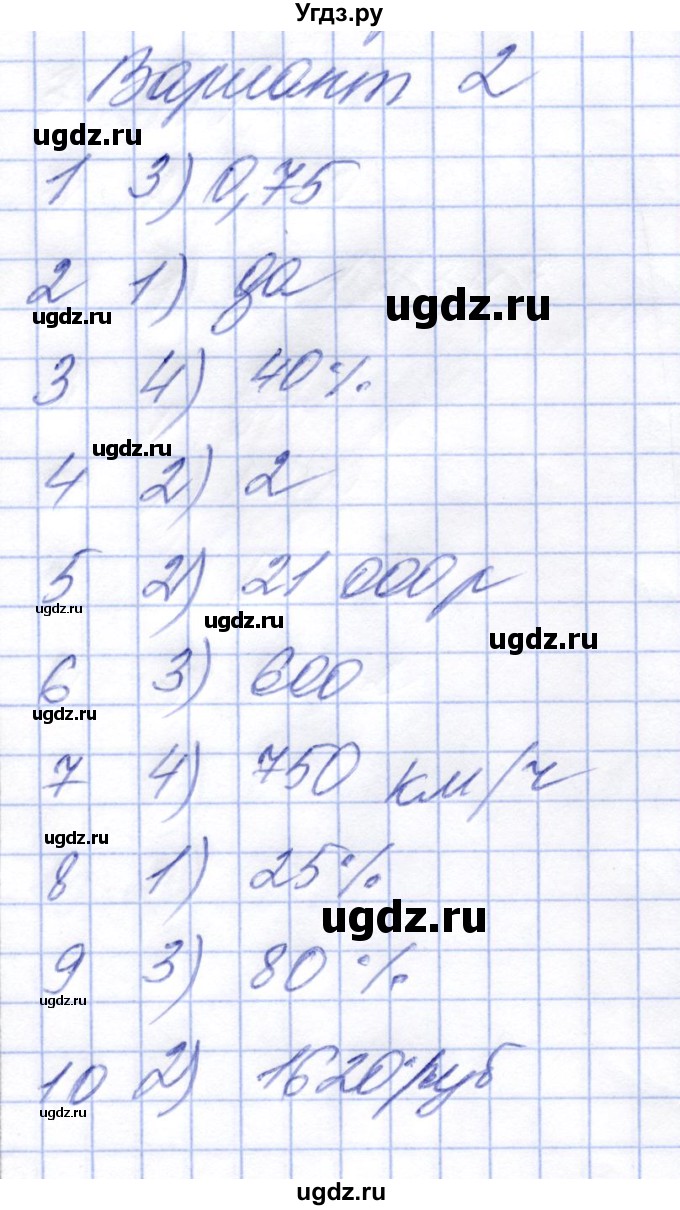 Угдз.ру
Вариант 2
ugdz.ru
1 3) 0,75
2 1) да
ugdz.ru
ugdz.ru
3 4) 40%
ugdz.ru
4 2) 2
5 2) 21 000 р
ugdz.ru
ugdz.ru
ugdz.ru
6 3) 600
ugdz.ru
7 4) 750 км/ч
ugdz.ru
8 1) 25%
ugdz.ru
9 3) 80%
ugdz.ru
10 2) 1620 руб
ugdz.ru
ugdz.ru